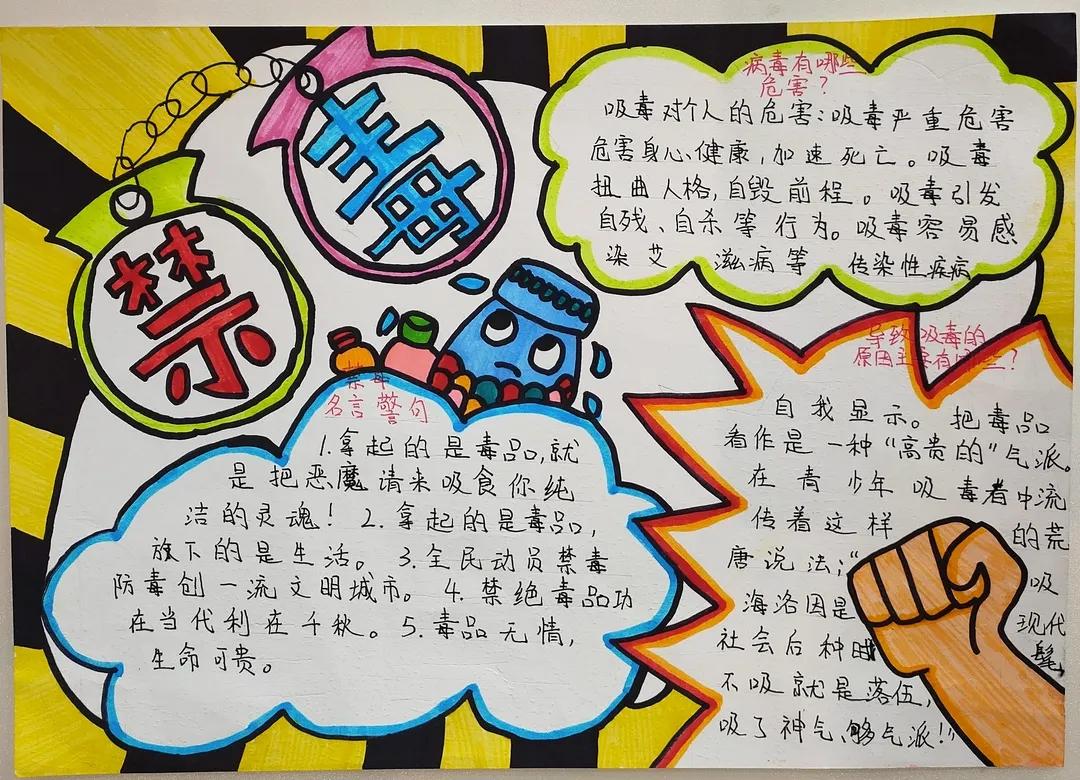 禁
毒
病毒有哪些
危害？
吸毒对个人的危害：吸毒严重危害
危害身心健康，加速死亡。吸毒
扭曲人格，自毁前程。吸毒引发
自残、自杀等行为。吸毒容易感
染艾 滋病等 传染性疾病
禁毒
名言警句
1.拿起的是毒品，就
是把恶魔请来吸食你纯
洁的灵魂！2.拿起的是毒品，
放下的是生活。3.全民动员禁毒
防毒创一流文明城市。4.禁绝毒品功
在当代利在千秋。5.毒品无情，
生命可贵。
导致吸毒的
原因主要有哪些？
自我显示。把毒品
看作是一种“高贵的”气派。
在青少年吸毒者中流
传着这样 的荒
唐说法：“ 吸
海洛因是 现代
社会后种时 髦
不吸就是落伍，
吸了神气、够气派！”